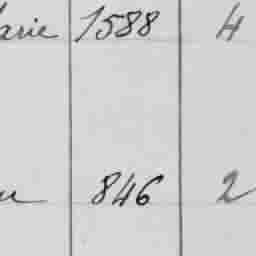 arie 1588 4
846 2